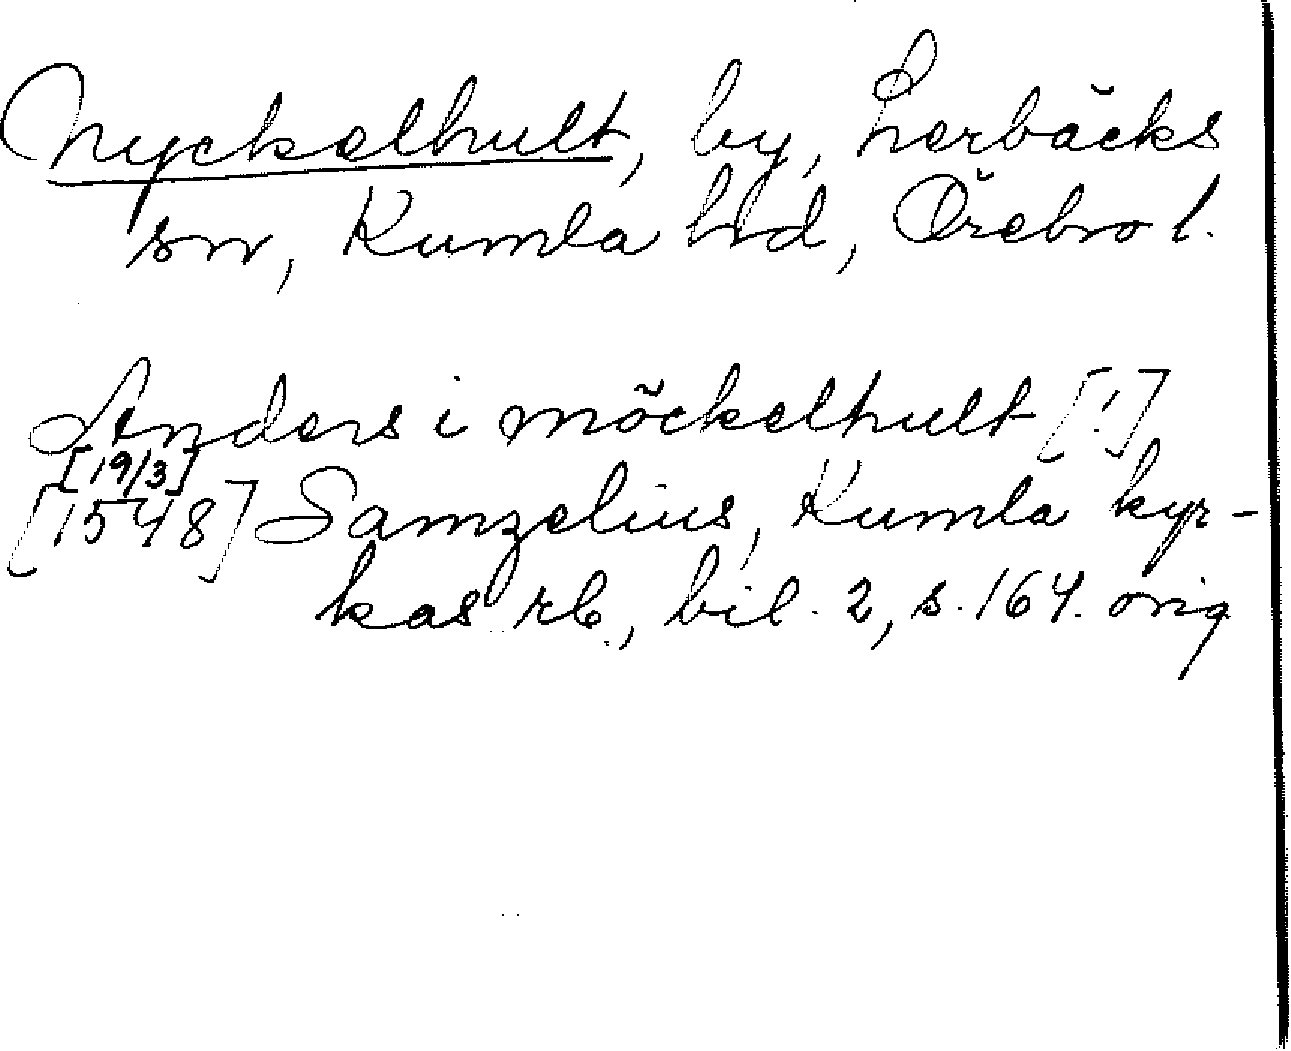 Nyckelhult, by, Lerbäcks
sn, Kumla hd, Örebro l.
Anders i möckelhult [!]
[19/3]
[1548] Samzelius, Kumla kyr-
kas rb., bil. 2, s. 164. orig.